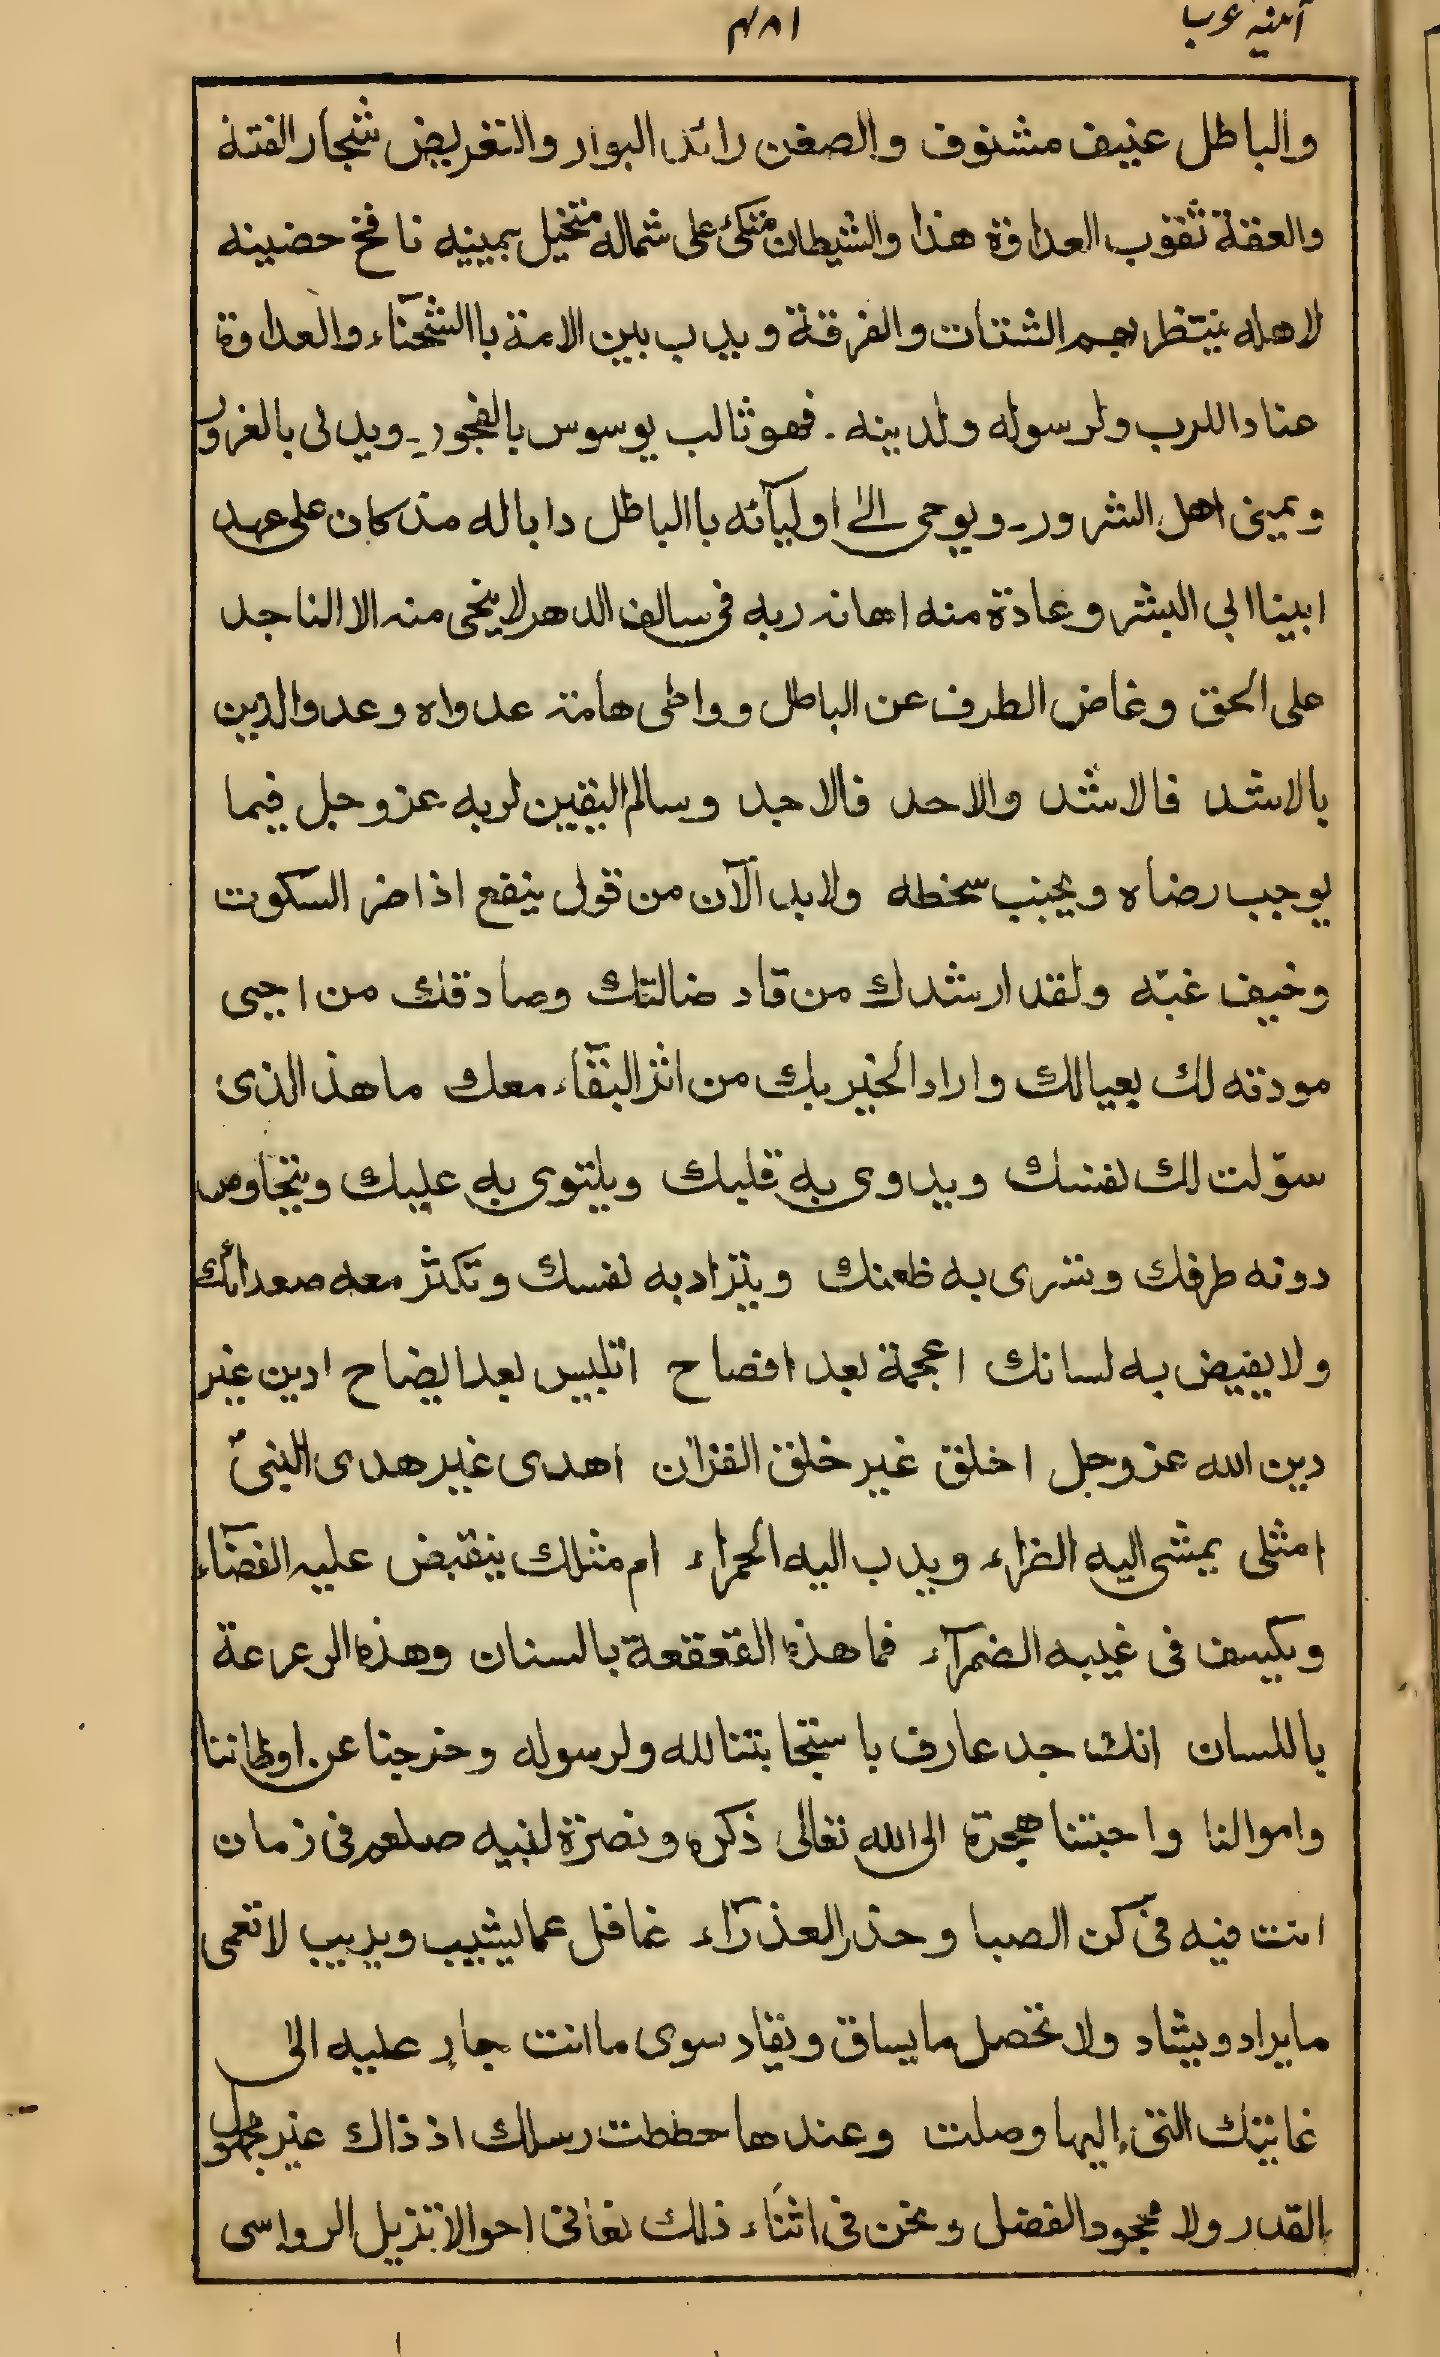 آئینہ عرب
۴۸۱
والباطل عنيف مشنوف والصغن رائد البوار والتغريض شجار الفتنة
والعقلة ثقوب العداوة هذا والشيطان متكئ على شماله متخيل بيمينه نافخ حضينه
لاهله ينتظر بهم الشتات والفرقة ويدب بين الامة باالشحنآء والعداوة
عنادا للرب ولرسوله ولدينه ۔ فهو ثالب يوسوس بالفجور ۔ ويدلى بالغرور
ويمينى اهل الشرور ۔ ويوحى الىٰ اوليآئه باالباطل دابا له مذ كان على عهد
ابينا ابى البشر وعادة منه اهانه ربه فى سالف الدهر لا ينحى منه الا الناجد
على الحق وغاض الطرف عن الباطل وواطى هامة عدواه وعدو الدين
بالاشد فالاشد والاحد فالاجد وسالم اليقين لربه عز وجل فيما
يوجب رضاه ويجنب سخطه ولابد الآن من قول ينفع اذا ضر السكوت
وخيف غبّه ولقد ارشدك من قاد ضالتك وصادقك من احيى
مودته لك بعيالك واراد الخير بك من اثر البقآء معك ما هذا الذى
سوّلت لك نفسك ويدوى به قلبك ويلتوى به عليك ويتخاوص
دونه طرفك وتسرى به ظعنك ويتزاد به نفسك وتكثر معه صعدائك
ولا يفيض به لسانك اعجمة بعد افصاح اتلبيس بعد ايضاح ادين غير
دين الله عز وجل اخلق غير خلق القرٰان اهدى غير هدى النبىّ
امثلى يمشى اليه الضراء ويدب اليه الحمراء ام مثلك ينقبض عليه الفضآء
ويكسف فى غيبه الضمرآء فما هذه القعقعة بالسنان وهذه الرعرعة
باللسان انك جد عارف باستجابتنا لله ولرسوله وخرجنا عن اوطاننا
واموالنا واحبتنا هجرة الى الله تعالى ذكره ونصرة لنبيه صلعم فى زمان
انت فيه فى كن الصبا وحذر العذرآء غافل عما يشيب ويريب لا تعمى
ما يراد ويشاد ولا تحصل ما يساق ويقاد سوى ما انت جار عليه الى
غايتك التى اليها وصلت وعندها حططت رسلك اذ ذاك غير مجهول
القدر ولا مجحود الفضل ونحن فى اثنآء ذلك نعانى احوالا تزيل الرواسى